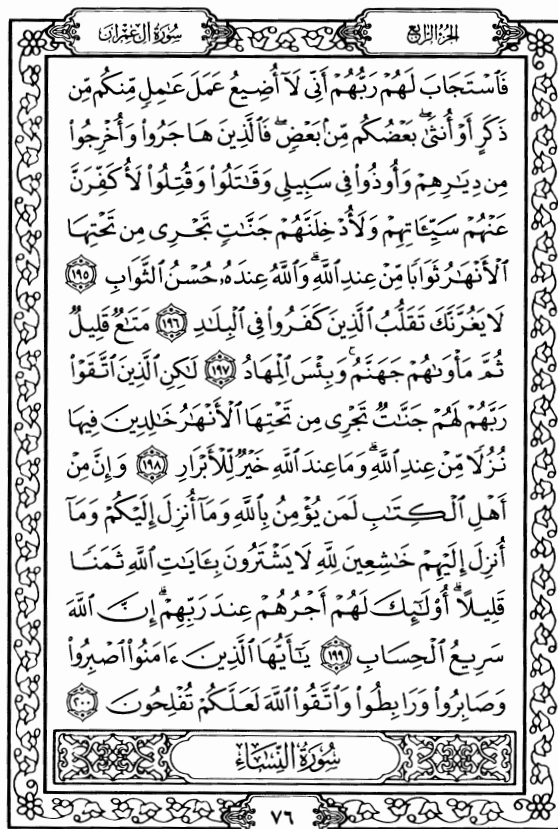 سورة آل عمران
الجزء الرابع
فَٱسْتَجَابَ لَهُمْ رَبُّهُمْ أَنِّي لَآ أُضِيعُ عَمَلَ عَٰمِلٍ مِّنكُم مِّن
ذَكَرٍ أَوْ أُنثَىٰ ۖ بَعْضُكُم مِّنۢ بَعْضٍ ۖ فَٱلَّذِينَ هَاجَرُوا۟ وَأُخْرِجُوا۟
مِن دِيَٰرِهِمْ وَأُوذُوا۟ فِي سَبِيلِي وَقَٰتَلُوا۟ وَقُتِلُوا۟ لَأُكَفِّرَنَّ
عَنْهُمْ سَيِّـَٔاتِهِمْ وَلَأُدْخِلَنَّهُمْ جَنَّٰتٍ تَجْرِي مِن تَحْتِهَا
ٱلْأَنْهَٰرُ ثَوَابًا مِّنْ عِندِ ٱللَّهِ ۗ وَٱللَّهُ عِندَهُۥ حُسْنُ ٱلثَّوَابِ ١٩٥
لَا يَغُرَّنَّكَ تَقَلُّبُ ٱلَّذِينَ كَفَرُوا۟ فِي ٱلْبِلَٰدِ ١٩٦ مَتَٰعٌ قَلِيلٌ
ثُمَّ مَأْوَىٰهُمْ جَهَنَّمُ ۚ وَبِئْسَ ٱلْمِهَادُ ١٩٧ لَٰكِنِ ٱلَّذِينَ ٱتَّقَوْا۟
رَبَّهُمْ لَهُمْ جَنَّٰتٌ تَجْرِي مِن تَحْتِهَا ٱلْأَنْهَٰرُ خَٰلِدِينَ فِيهَا
نُزُلًا مِّنْ عِندِ ٱللَّهِ ۗ وَمَا عِندَ ٱللَّهِ خَيْرٌ لِّلْأَبْرَارِ ١٩٨ وَإِنَّ مِنْ
أَهْلِ ٱلْكِتَٰبِ لَمَن يُؤْمِنُ بِٱللَّهِ وَمَآ أُنزِلَ إِلَيْكُمْ وَمَآ
أُنزِلَ إِلَيْهِمْ خَٰشِعِينَ لِلَّهِ لَا يَشْتَرُونَ بِـَٔايَٰتِ ٱللَّهِ ثَمَنًا
قَلِيلًا ۗ أُو۟لَٰٓئِكَ لَهُمْ أَجْرُهُمْ عِندَ رَبِّهِمْ ۗ إِنَّ ٱللَّهَ
سَرِيعُ ٱلْحِسَابِ ١٩٩ يَٰٓأَيُّهَا ٱلَّذِينَ ءَامَنُوا۟ ٱصْبِرُوا۟
وَصَابِرُوا۟ وَرَابِطُوا۟ وَٱتَّقُوا۟ ٱللَّهَ لَعَلَّكُمْ تُفْلِحُونَ ٢٠٠
سُورَةُ النِّسَاءِ
٧٦